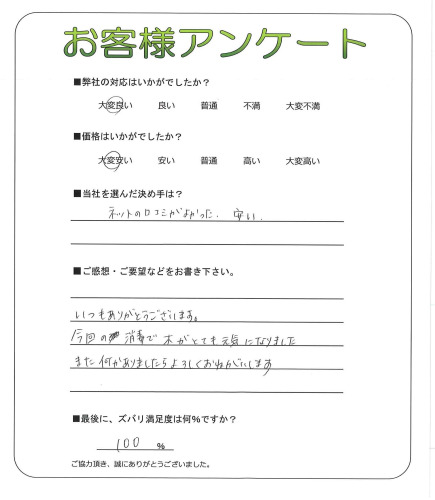 お客様アンケート
■弊社の対応はいかがでしたか？
大変良い 良い 普通 不満 大変不満
■価格はいかがでしたか？
大変安い 安い 普通 高い 大変高い
■当社を選んだ決め手は？
ネットの口コミがよかった. 安い.
■ご感想・ご要望などをお書き下さい。
いつもありがとうございます。
今回の 消毒で 木がとても元気になりました
また何かありましたらよろしくおねがいします
■最後に、ズバリ満足度は何％ですか？
100 %
ご協力頂き、誠にありがとうございました。